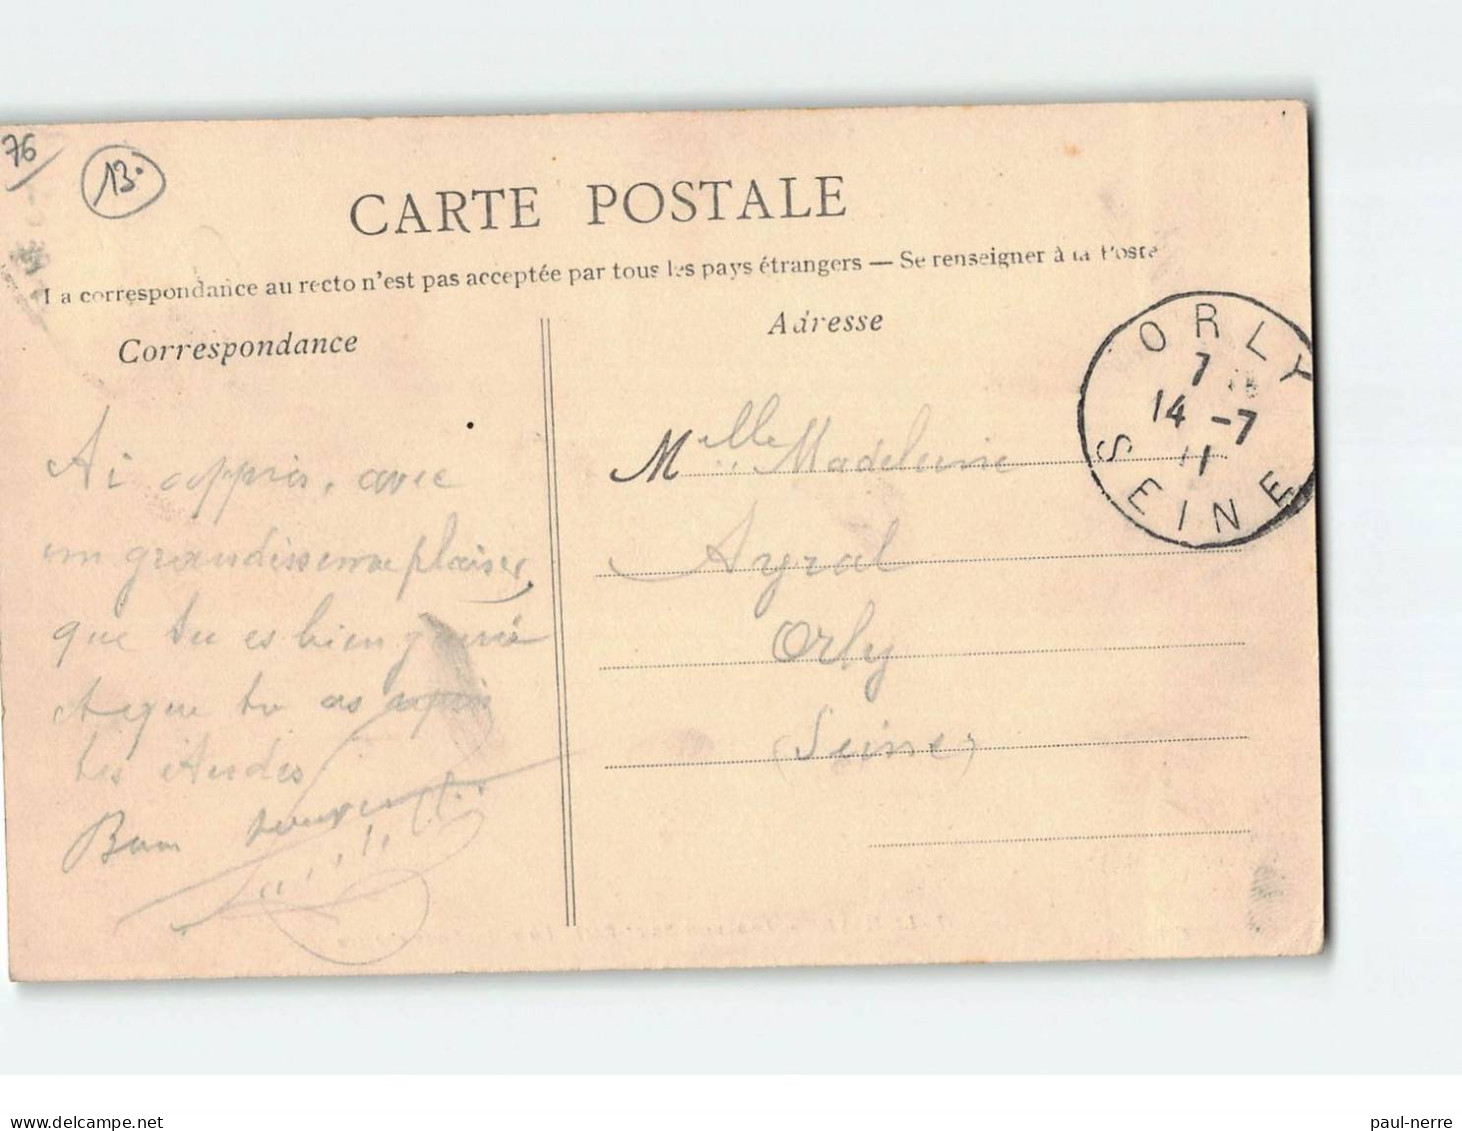 76
13.
CARTE POSTALE
La correspondance au recto n'est pas acceptée par tous les pays étrangers — Se renseigner à la Poste
Correspondance
Adresse
ORLY
7
14 -7
11
SEINE
Ai appris, avec
un grandissime plaisir
que tu es bien
et que tu as
les
Bon
Melle Madeleine
Ayral
Orly
(Seine)
www.delcampe.net
paul-nerre